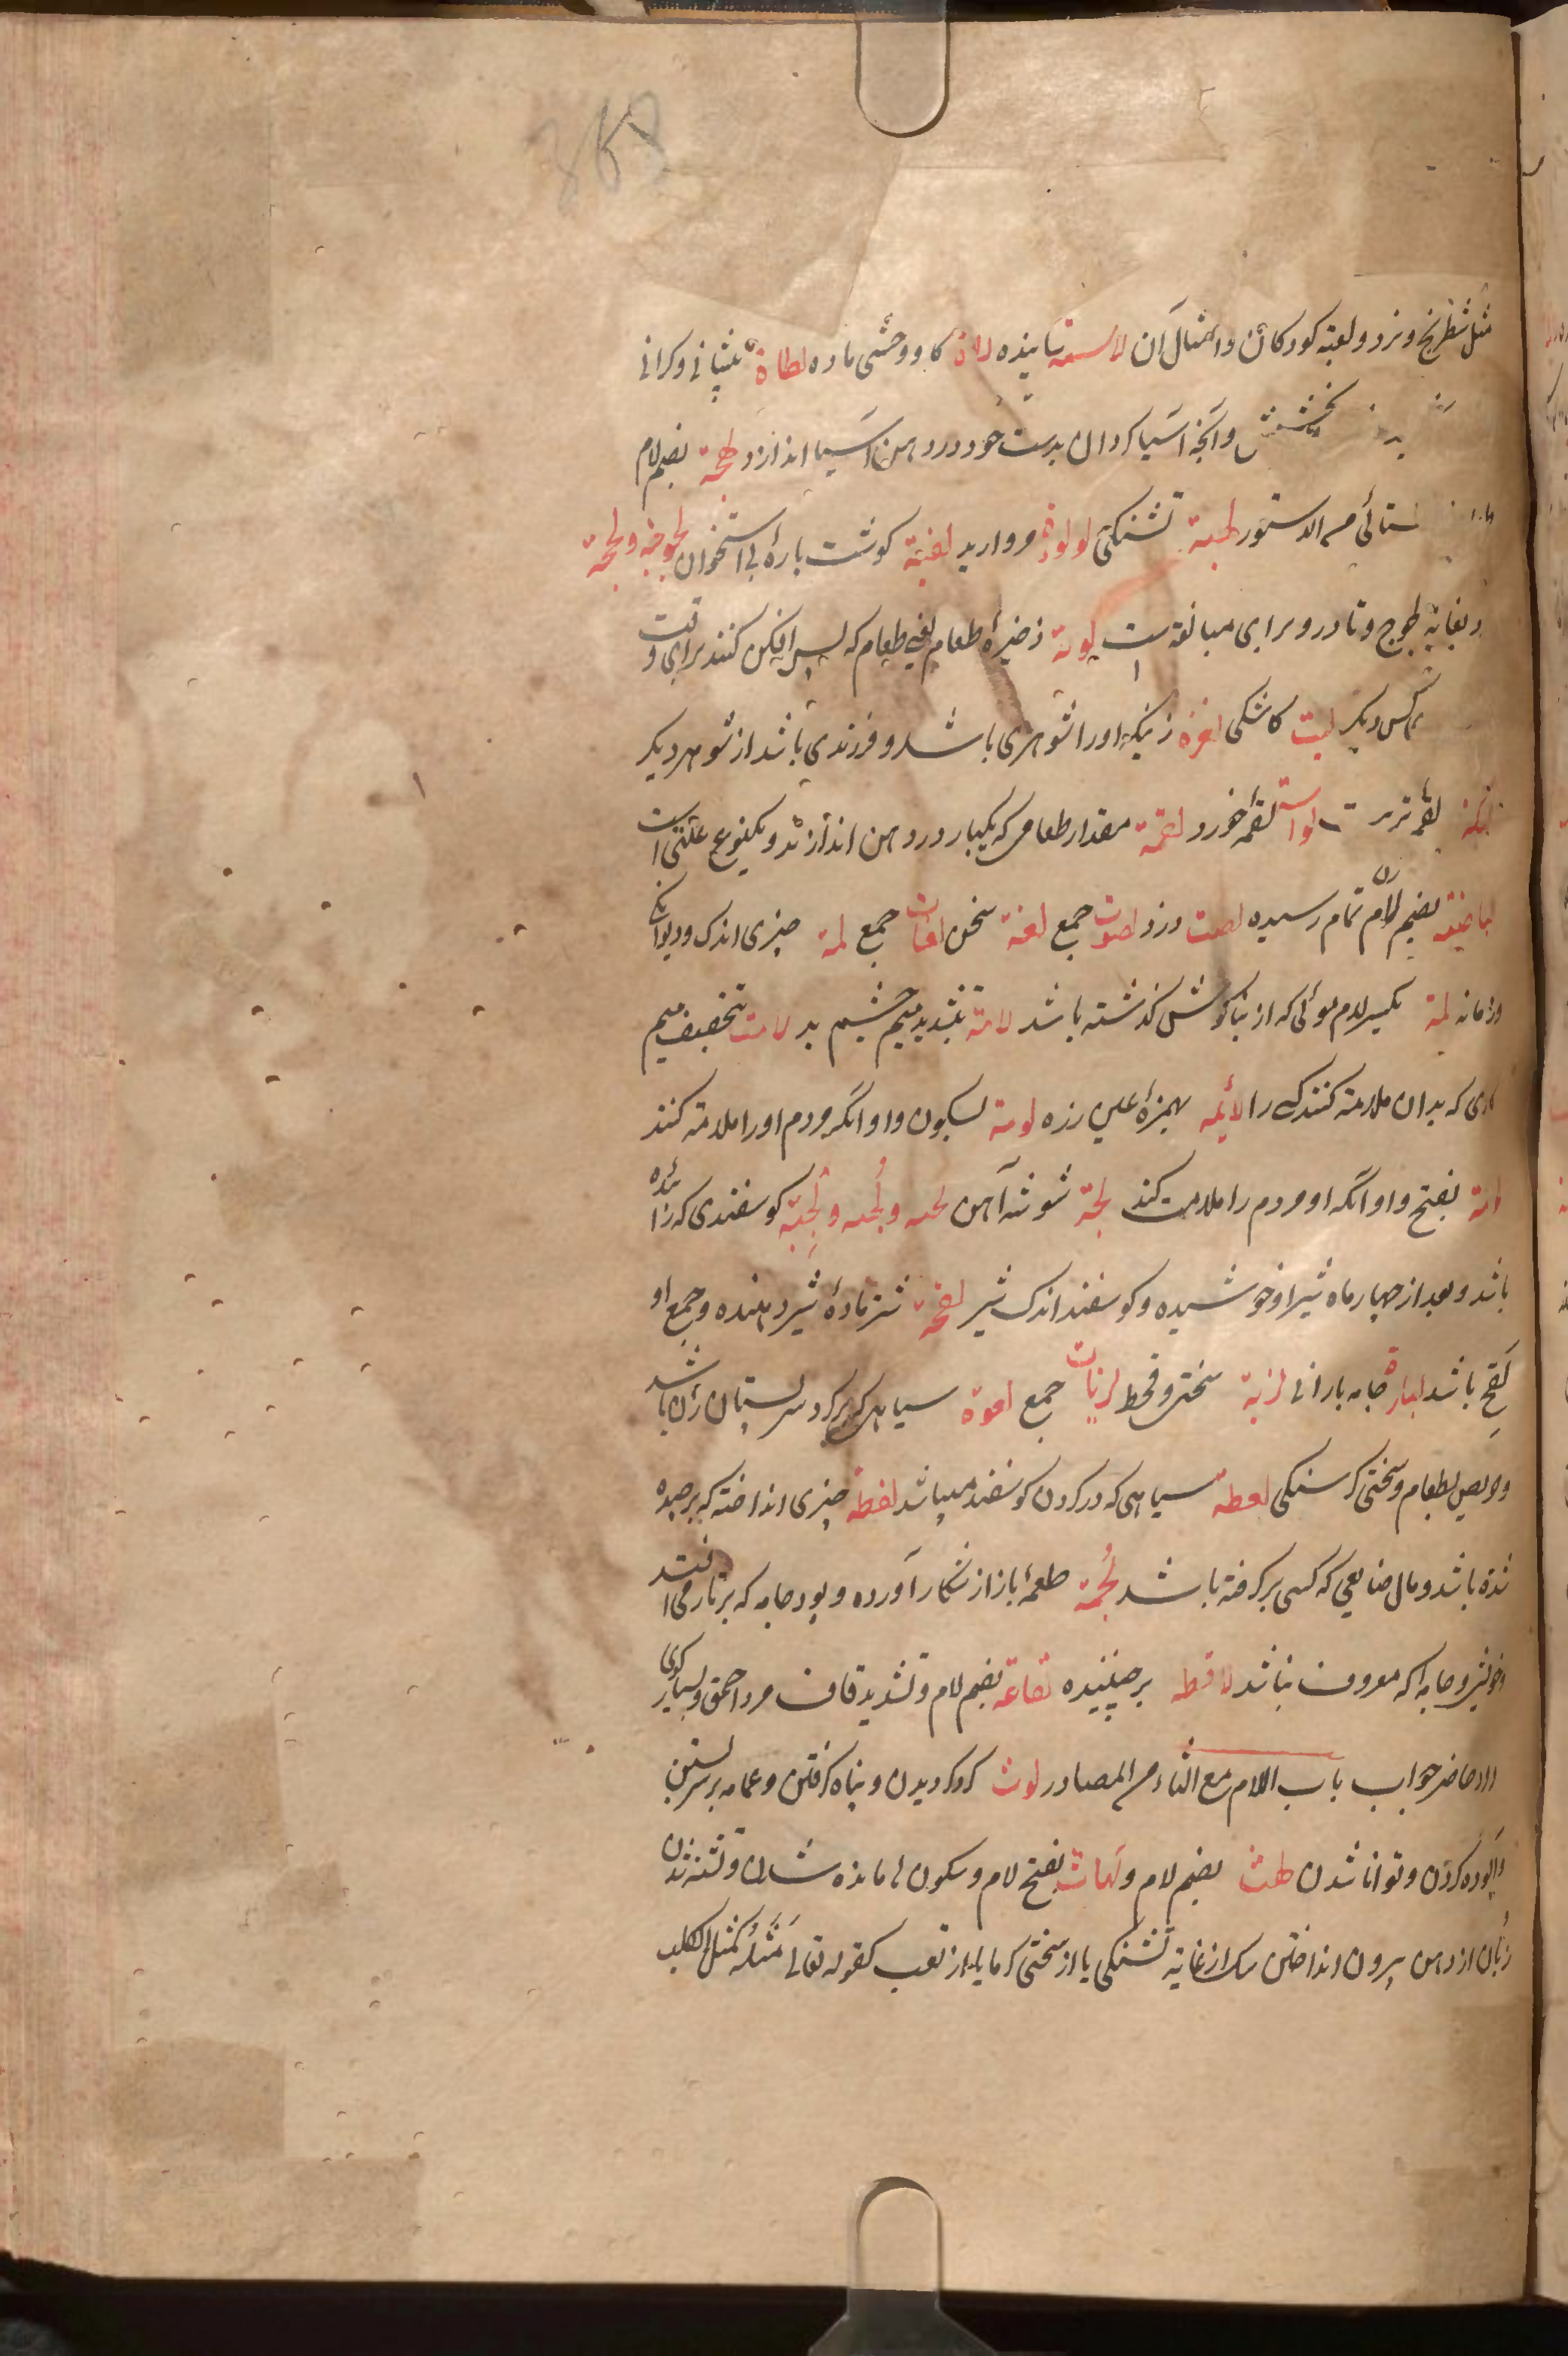 مثل شطرنج و نرد و لعبه کودکان و امثال آن لاسته یابنده لاة کاو وحشی ماده لطاة پیشانی و کرانی
بخشش و آنچه آسیا کردان بدست خود در دهن آسیا اندازد لهجة بضم لام
من الدستور لهبة تشنکی لولوة مروارید لفیة کوشت پارهٔ بی استخوان لجوجه و لجة
بغایة لجوج و تا در و برای مبالغه است لویة ذخیرهٔ طعام یعنی طعام که پس افکن کنند برای وقت
کس دیکر لیت کاشکی لفوت زنیکه او را شوهری باشد و فرزندی باشد از شوهر دیکر
لقمه لقمه خورد لقمة مقدار طعامی که یکبار در دهن اندازند و یکنوع علتی است
بضم لام تمام رسیده لصت دزد لصوت جمع لغة سخن لغات جمع لمة چیزی اندک و دیوانکی
و زمانه لمة بکسر لام موئی که از بناکوش کذشته باشد لامة بتشدید میم چشم بد لامت بتخفیف میم
که بدان ملامة کنند کسی را لائمه بهمزهٔ علی زره لومة بسکون واو آنکه مردم او را ملامة کنند
بفتح واو آنکه او مردم را ملامت کند لجة شوشه آهن لجبه و لجبه و لجبة کوسفندی که زائیده
باشد و بعد از چهار ماه شیر او خوشیده و کوسفند اندک شیر لقحة شتر مادهٔ شیر دهنده و جمع او
لقح باشد لبادة جامه بارانی لزبة سختی و قحط لزبات جمع لعوة سیاهی که بر کرد سر پستان زن باشد
و حریص بطعام و سختی کرسنکی لعطه سیاهی که در کردن کوسفند میباشد لقطة چیزی انداخته که برچیده
شده باشد و مال ضایعی که کسی بر کرفته باشد لحمة طعمهٔ باز از شکار آورده و پود جامه که بر تار می افتد
و خویشی و جامه که معروف نباشد لاقطه برچیننده لقاعه بضم لام و تشدید قاف مرد احمق و بسیار کوی
الا حاضر جواب باب اللام مع الثاء من المصادر لوث کرد کردیدن و پناه کرفتن و عمامه بر سر بستن
و آلوده کردن و توانا شدن لهث بضم لام و لهاث بفتح لام و سکون ها مانده شدن و تشنه شدن
زبان از دهن بیرون انداختن سک از غایة تشنکی یا از سختی کرما یا از تعب کقوله تعالی مَثَلُه کمثل الکلب